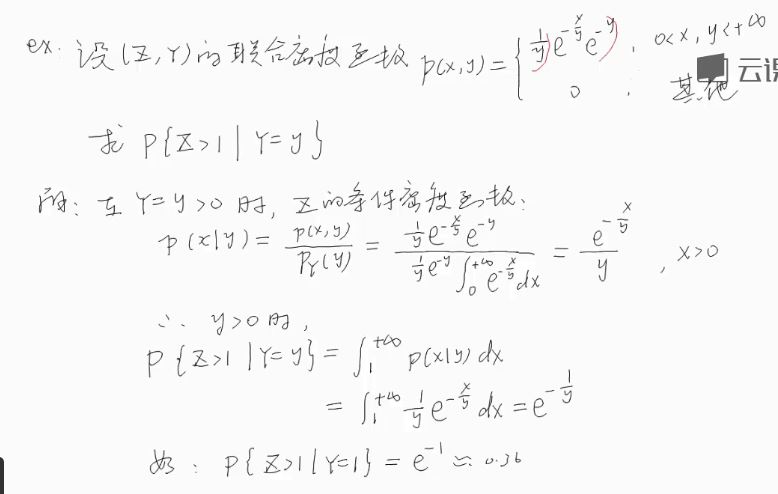 ex. 设(X,Y)的联合密度函数 p(x,y) = { \frac{1}{y} e^{-\frac{x}{y}} e^{-y} , 0<x,y<+∞
0 , 其他
云课
求 P{X>1 | Y=y}
解: 在 Y=y>0 时, X的条件密度函数:
p(x|y) = \frac{p(x,y)}{P_Y(y)} = \frac{\frac{1}{y} e^{-\frac{x}{y}} e^{-y}}{\frac{1}{y} e^{-y} \int_0^{+∞} e^{-\frac{x}{y}} dx} = \frac{e^{-\frac{x}{y}}}{y} , x>0
∴ y>0 时,
P{X>1 | Y=y} = \int_1^{+∞} p(x|y) dx
= \int_1^{+∞} \frac{1}{y} e^{-\frac{x}{y}} dx = e^{-\frac{1}{y}}
如: P{X>1 | Y=1} = e^{-1} ≈ 0.36